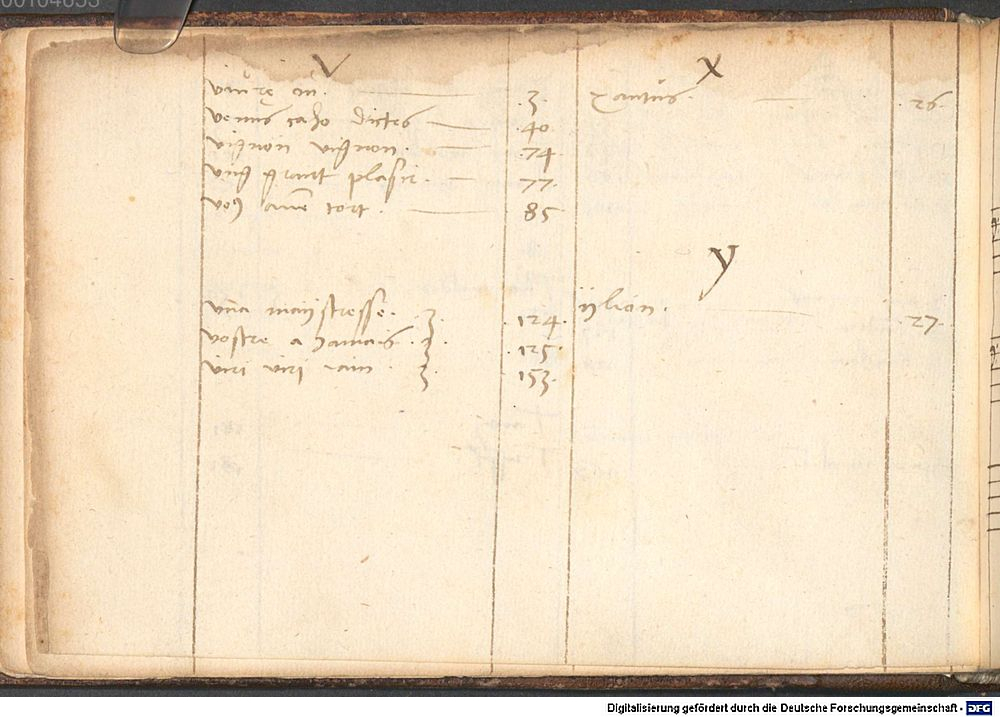 00104633
V
viure .3.
venus dictes 40
vignon vignon. 74
ung grant plasir. 77.
vo9 tort. 85
una maystresse. 3 .124.
vostre a jamais. 3. .125.
viri viri 3. .153.
X
Xantus. .26.
Y
ylion. .27.
Digitalisierung gefördert durch die Deutsche Forschungsgemeinschaft - DFG